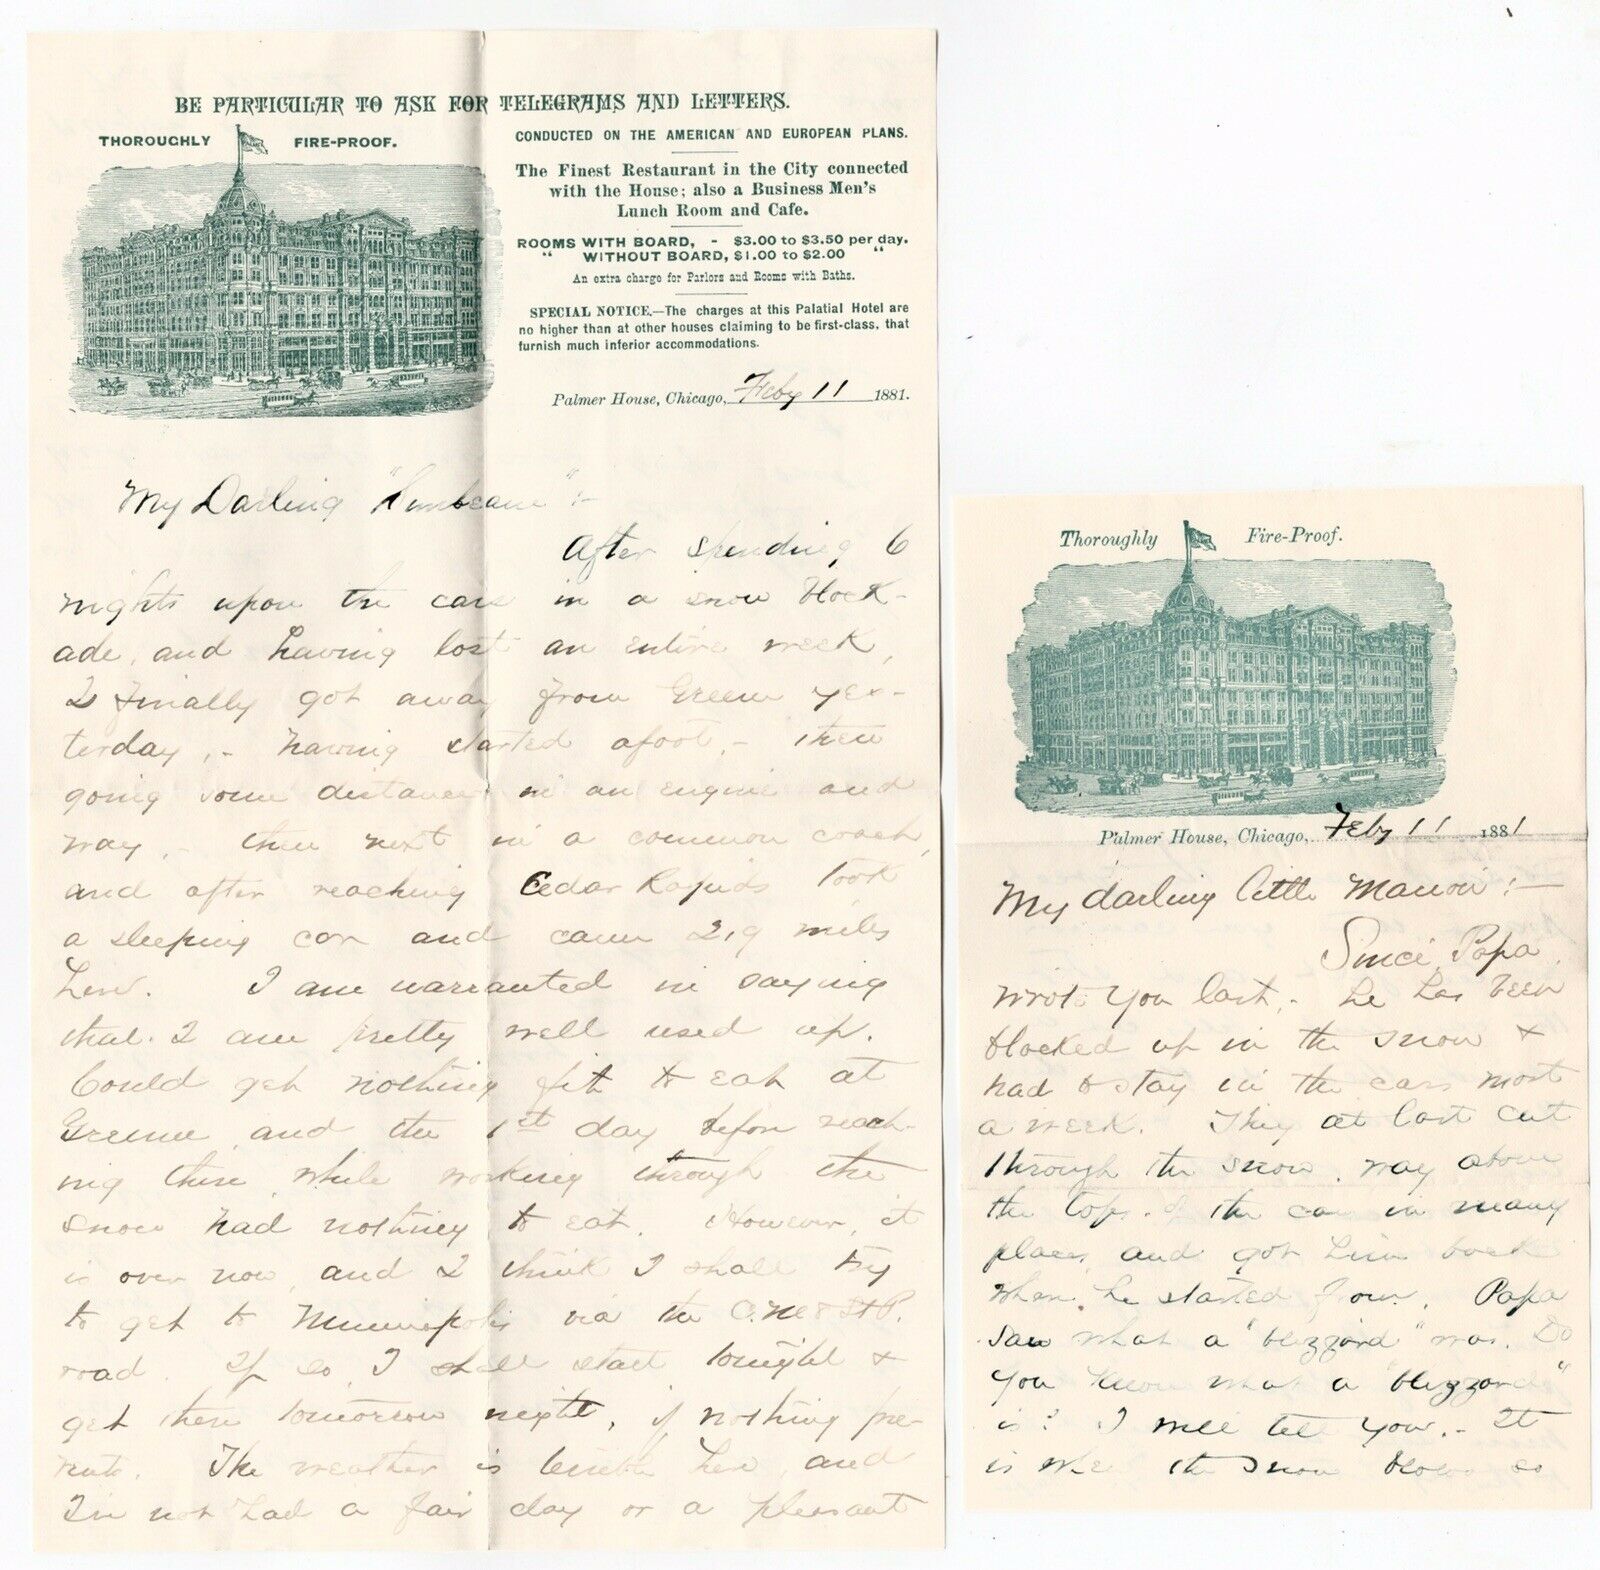 BE PARTICULAR TO ASK FOR TELEGRAMS AND LETTERS.
THOROUGHLY FIRE-PROOF.
CONDUCTED ON THE AMERICAN AND EUROPEAN PLANS.
The Finest Restaurant in the City connected
with the House; also a Business Men's
Lunch Room and Cafe.
ROOMS WITH BOARD, - $3.00 to $3.50 per day.
" WITHOUT BOARD, $1.00 to $2.00 "
An extra charge for Parlors and Rooms with Baths.
SPECIAL NOTICE.—The charges at this Palatial Hotel are
no higher than at other houses claiming to be first-class, that
furnish much inferior accommodations.
Palmer House, Chicago, Feby 11 1881.
My Darling "Sunbeam" :-
After spending 6
nights upon the cars in a snow block-
ade, and having lost an entire week,
I finally got away from Greene yes-
terday, - having started afoot, - then
going some distance in an engine and
way, - then next in a common coach,
and after reaching Cedar Rapids took
a sleeping car and came 219 miles
here. I am warranted in saying
that I am pretty well used up.
Could get nothing fit to eat at
Greene and the 1st day before reach-
ing there while working through the
snow had nothing to eat. However, it
is over now, and I think I shall try
to get to Minneapolis via the C. M & St P.
road. If so, I shall start tonight &
get there tomorrow night, if nothing pre-
vents. The weather is terrible here, and
I've not had a fair day or a pleasant
Thoroughly Fire-Proof.
Palmer House, Chicago, Feby 11 1881
My darling little Marion :-
Since Papa
wrote you last, he has been
blocked up in the snow &
had to stay in the cars most
a week. They at last cut
through the snow, way above
the tops of the car in many
places, and got him back
where he started from. Papa
saw what a "blizzard" was. Do
you know what a "blizzard"
is? I will tell you. - It
is when the snow blows so